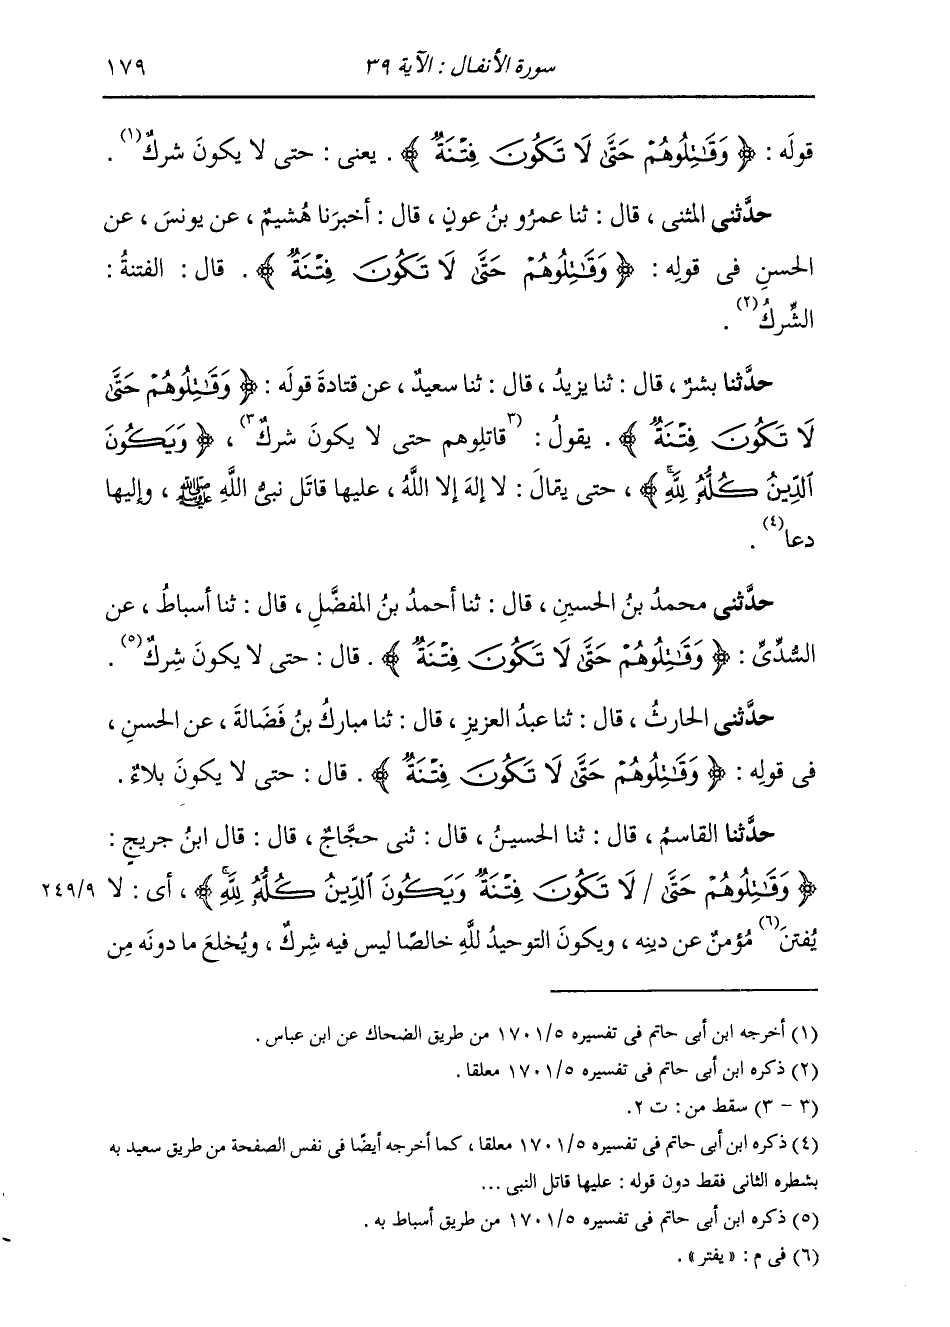 سورة الأنفال : الآية ٣٩ ١٧٩
قولَه : ﴿ وَقَٰتِلُوهُمْ حَتَّىٰ لَا تَكُونَ فِتْنَةٌ ﴾ . يعنى : حتى لا يكونَ شركٌ(١) .
حدَّثنى المثنى ، قال : ثنا عمرُو بنُ عونٍ ، قال : أخبرَنا هُشيمٌ ، عن يونسَ ، عن
الحسنِ فى قولِه : ﴿ وَقَٰتِلُوهُمْ حَتَّىٰ لَا تَكُونَ فِتْنَةٌ ﴾ . قال : الفتنةُ :
الشِّركُ(٢) .
حدَّثنا بشرٌ ، قال : ثنا يزيدُ ، قال : ثنا سعيدٌ ، عن قتادةَ قولَه : ﴿ وَقَٰتِلُوهُمْ حَتَّىٰ
لَا تَكُونَ فِتْنَةٌ ﴾ . يقولُ : (٣قاتلِوهم حتى لا يكونَ شركٌ٣) ، ﴿ وَيَكُونَ
ٱلدِّينُ كُلُّهُۥ لِلَّهِ ﴾ ، حتى يقالَ : لا إلهَ إلا اللَّهُ ، عليها قاتَل نبىُّ اللَّهِ ﷺ ، وإليها
دعا(٤) .
حدَّثنى محمدُ بنُ الحسينِ ، قال : ثنا أحمدُ بنُ المفضَّلِ ، قال : ثنا أسباطُ ، عن
السُّدِّىِّ : ﴿ وَقَٰتِلُوهُمْ حَتَّىٰ لَا تَكُونَ فِتْنَةٌ ﴾ . قال : حتى لا يكونَ شِركٌ(٥) .
حدَّثنى الحارثُ ، قال : ثنا عبدُ العزيزِ ، قال : ثنا مباركُ بنُ فَضَالةَ ، عن الحسنِ ،
فى قولِه : ﴿ وَقَٰتِلُوهُمْ حَتَّىٰ لَا تَكُونَ فِتْنَةٌ ﴾ . قال : حتى لا يكونَ بلاءٌ .
حدَّثنا القاسمُ ، قال : ثنا الحسينُ ، قال : ثنى حجَّاجٌ ، قال : قال ابنُ جريجٍ :
﴿ وَقَٰتِلُوهُمْ حَتَّىٰ / لَا تَكُونَ فِتْنَةٌ وَيَكُونَ ٱلدِّينُ كُلُّهُۥ لِلَّهِ ﴾ ، أى : لا ٢٤٩/٩
يُفتنَ(٦) مُؤمنٌ عن دينِه ، ويكونَ التوحيدُ للَّهِ خالصًا ليس فيه شِركٌ ، ويُخلعَ ما دونَه مِن
(١) أخرجه ابن أبى حاتم فى تفسيره ١٧٠١/٥ من طريق الضحاك عن ابن عباس .
(٢) ذكره ابن أبى حاتم فى تفسيره ١٧٠١/٥ معلقا .
(٣ - ٣) سقط من : ت ٢.
(٤) ذكره ابن أبى حاتم فى تفسيره ١٧٠١/٥ معلقا ، كما أخرجه أيضًا فى نفس الصفحة من طريق سعيد به
بشطره الثانى فقط دون قوله : عليها قاتل النبى ...
(٥) ذكره ابن أبى حاتم فى تفسيره ١٧٠١/٥ من طريق أسباط به .
(٦) فى م : « يفتر » .